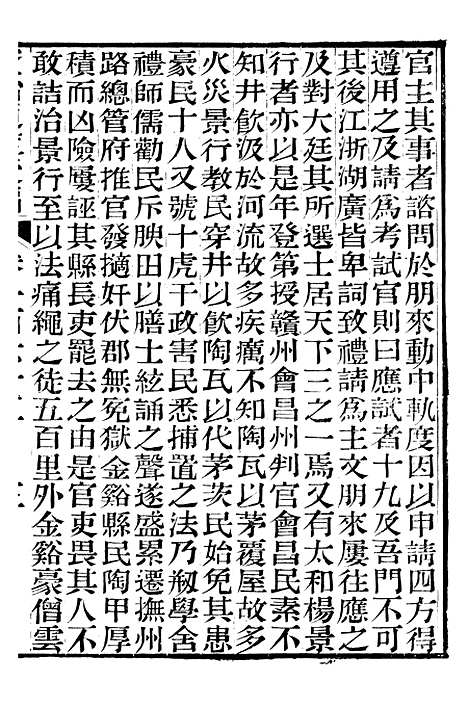 官主其事者諮問於朋來動中軌度因以申請四方得
遵用之及請爲考試官則曰應試者十九及吾門不可
其後江浙湖廣皆卑詞致禮請爲主文朋來屢往應之
及對大廷其所選士居天下三之一焉又有太和楊景
行者亦以是年登第授贛州會昌州判官會昌民素不
知井飮汲於河流故多疾癘不知陶瓦以茅覆屋故多
火災景行教民穿井以飮陶瓦以代茅茨民始免其患
豪民十八又號十虎干政害民悉捕寘之法乃剏學舍
禮師儒勸民斥腴田以膳士絃誦之聲遂盛累遷撫州
路總管府推官發擿奸伏郡無冤獄金谿縣民陶甲厚
積而凶險屢誣其縣長吏罷去之由是官吏畏其人不
敢詰治景行至以法痛繩之徒五百里外金谿豪僧雲